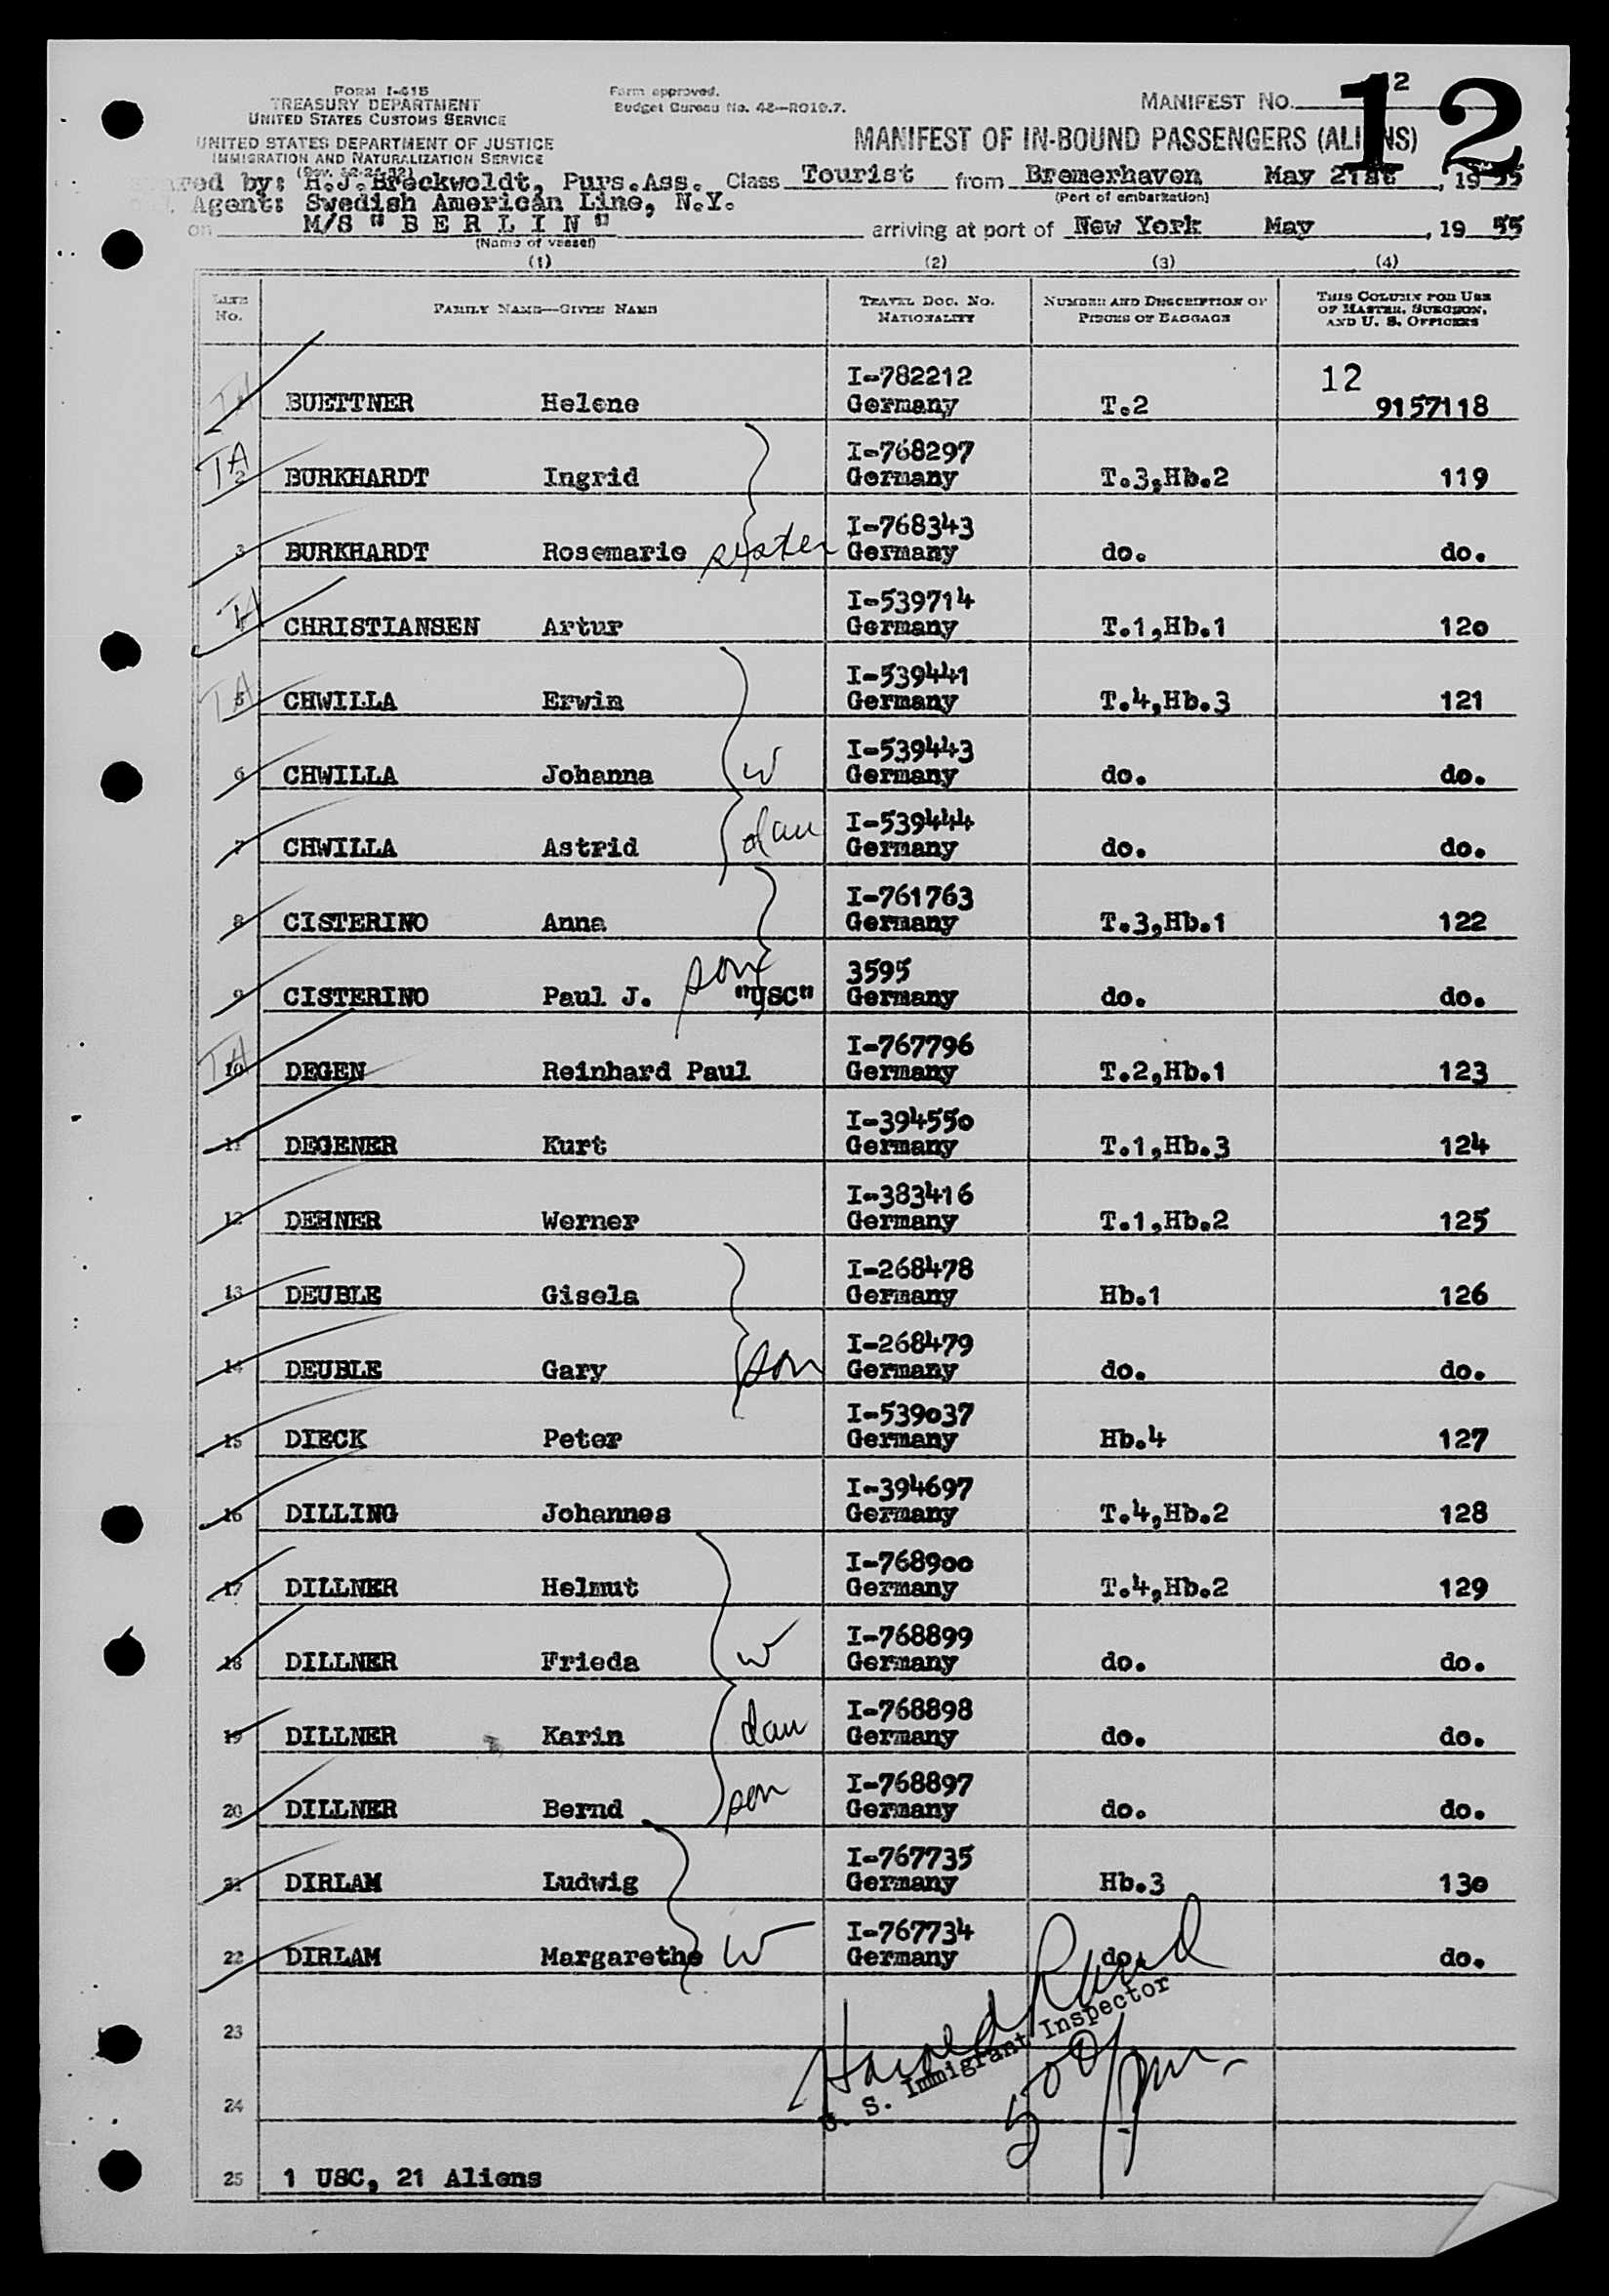 FORM I-418
TREASURY DEPARTMENT
UNITED STATES CUSTOMS SERVICE
UNITED STATES DEPARTMENT OF JUSTICE
IMMIGRATION AND NATURALIZATION SERVICE
Form approved.
Budget Bureau No. 43—R019.7.
MANIFEST NO. 12
12
MANIFEST OF IN-BOUND PASSENGERS (ALIENS)
by: H.J.Breckwoldt, Purs.Ass. Class Tourist from Bremerhaven May 21st, 1955
(Port of embarkation)
Agent: Swedish American Line, N.Y.
on M/S " B E R L I N " arriving at port of New York May , 19 55
(Name of vessel)
(1) (2) (3) (4)
LINE NO. FAMILY NAME—GIVEN NAME TRAVEL DOC. NO. NATIONALITY NUMBER AND DESCRIPTION OF PIECES OF BAGGAGE THIS COLUMN FOR USE OF MASTER, SURGEON, AND U. S. OFFICERS
I-782212 12
TA BUETTNER Helene Germany T.2 9157118
I-768297
TA 2 BURKHARDT Ingrid Germany T.3,Hb.2 119
I-768343
3 BURKHARDT Rosemarie sister Germany do. do.
I-539714
TA 4 CHRISTIANSEN Artur Germany T.1,Hb.1 120
I-539441
TA 5 CHWILLA Erwin Germany T.4,Hb.3 121
I-539443
6 CHWILLA Johanna w Germany do. do.
I-539444
7 CHWILLA Astrid dau Germany do. do.
I-761763
8 CISTERINO Anna Germany T.3,Hb.1 122
3595
9 CISTERINO Paul J. son "USC" Germany do. do.
I-767796
TA 10 DEGEN Reinhard Paul Germany T.2,Hb.1 123
I-394550
11 DEGENER Kurt Germany T.1,Hb.3 124
I-383416
12 DEHNER Werner Germany T.1,Hb.2 125
I-268478
13 DEUBLE Gisela Germany Hb.1 126
I-268479
14 DEUBLE Gary son Germany do. do.
I-539037
15 DIECK Peter Germany Hb.4 127
I-394697
16 DILLING Johannes Germany T.4,Hb.2 128
I-768900
17 DILLNER Helmut Germany T.4,Hb.2 129
I-768899
18 DILLNER Frieda w Germany do. do.
I-768898
19 DILLNER Karin dau Germany do. do.
I-768897
20 DILLNER Bernd son Germany do. do.
I-767735
21 DIRLAM Ludwig Germany Hb.3 130
I-767734
22 DIRLAM Margarethe w Germany do. do.
23
Harold Rand
U. S. Immigrant Inspector
500 pm
24
25 1 USC, 21 Aliens